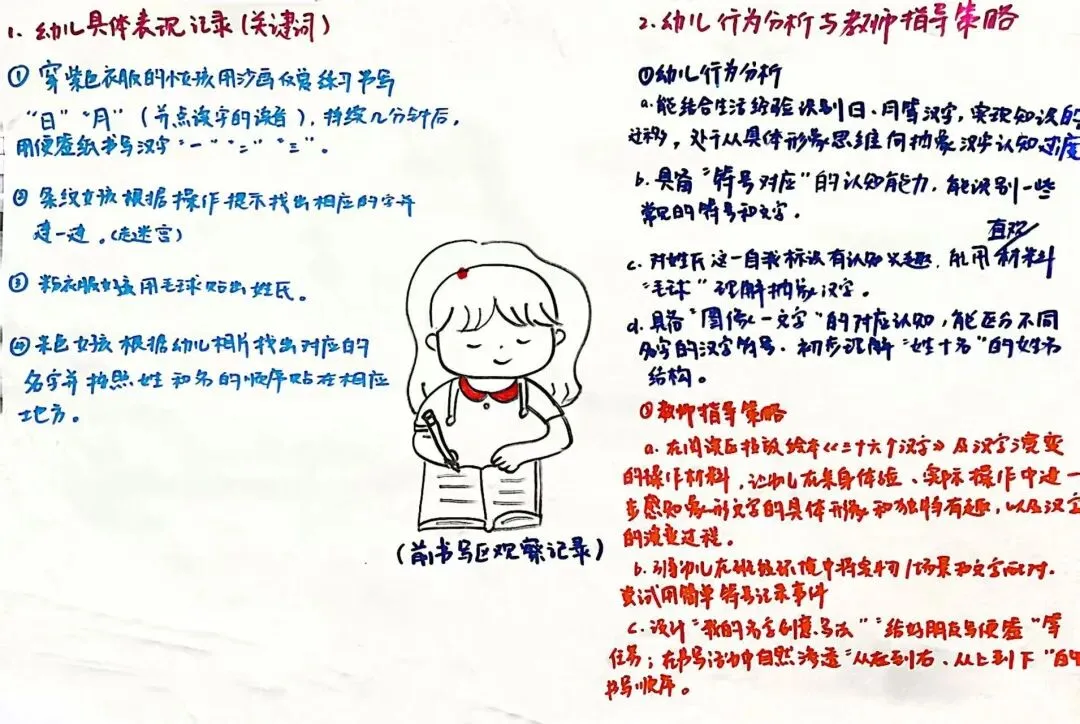 1. 幼儿具体表现记录(关键词)
① 穿紫色衣服的小女孩用沙画仪练习书写
“日”“月”(并点该字的读音),持续几分钟后,
用便签纸书写汉字“一”“二”“三”。
② 条纹女孩根据操作提示找出相应的字并
连一连。(走迷宫)
③ 粉衣服女孩用毛球贴出姓氏。
④ 米色女孩根据幼儿相片找出对应的
名字并按照姓和名的顺序贴在相应
地方。
(前书写区观察记录)
2. 幼儿行为分析与教师指导策略
①幼儿行为分析
a. 能结合生活经验识别日、月等汉字,实现知识的
迁移,处于从具体形象思维向抽象汉字认知过度
b. 具备“符号对应”的认知能力,能识别一些
常见的符号和文字。
直观
c. 对姓氏这一自我标识有认知兴趣,能用材料
“毛球”理解抽象汉字。
d. 具备“图像—文字”的对应认知,能区分不同
名字的汉字符号。初步理解“姓+名”的姓名
结构。
②教师指导策略
a. 在阅读区投放绘本《三十六个汉字》及汉字演变
的操作材料,让幼儿在亲身体验、实际操作中进一
步感知象形文字的具体形象和独特有趣,以及汉字
的演变过程。
b. 引导幼儿在班级环境中将实物/场景和文字配对.
尝试用简单符号记录事件
c. 设计“我的名字创意写法”“给好朋友写便签”等
任务;在书写活动中自然渗透“从左到右、从上到下”的
书写顺序。